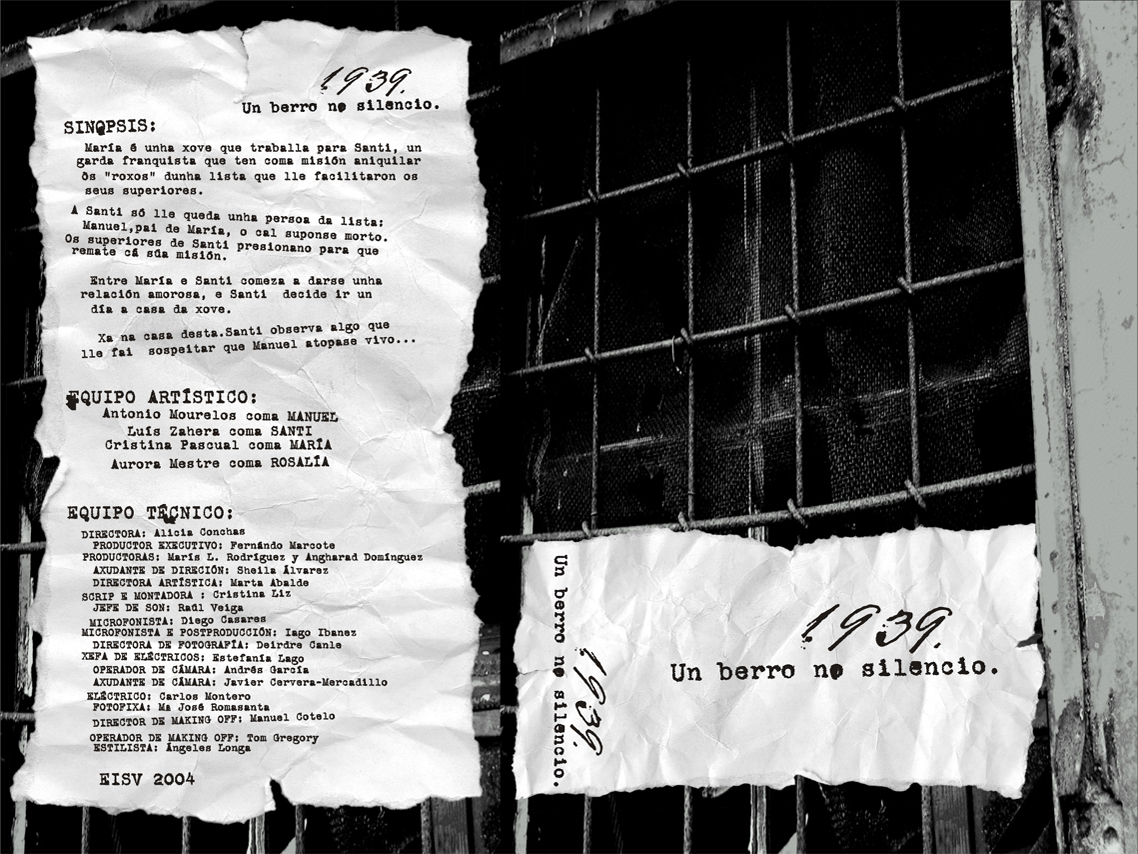 1939.
Un berro no silencio.
SINOPSIS:
María é unha xove que traballa para Santi, un
garda franquista que ten coma misión aniquilar
ós "roxos" dunha lista que lle facilitaron os
seus superiores.
A Santi só lle queda unha persoa da lista:
Manuel,pai de María, o cal suponse morto.
Os superiores de Santi presionano para que
remate cá súa misión.
Entre María e Santi comeza a darse unha
relación amorosa, e Santi decide ir un
día a casa da xove.
Xa na casa desta.Santi observa algo que
lle fai sospeitar que Manuel atopase vivo...
EQUIPO ARTÍSTICO:
Antonio Mourelos coma MANUEL
Luís Zahera coma SANTI
Cristina Pascual coma MARÍA
Aurora Mestre coma ROSALÍA
EQUIPO TÉCNICO:
DIRECTORA: Alicia Conchas
PRODUCTOR EXECUTIVO: Fernándo Marcote
PRODUCTORAS: María L. Rodríguez y Angharad Domínguez
AXUDANTE DE DIRECIÓN: Sheila Álvarez
DIRECTORA ARTÍSTICA: Marta Abalde
SCRIP E MONTADORA : Cristina Liz
JEFE DE SON: Raúl Veiga
MICROFONISTA: Diego Casares
MICROFONISTA E POSTPRODUCCIÓN: Iago Ibanez
DIRECTORA DE FOTOGRAFÍA: Deirdre Canle
XEFA DE ELÉCTRICOS: Estefanía Lago
OPERADOR DE CÁMARA: Andrés García
AXUDANTE DE CÁMARA: Javier Cervera-Mercadillo
ELÉCTRICO: Carlos Montero
FOTOFIXA: Ma José Romasanta
DIRECTOR DE MAKING OFF: Manuel Cotelo
OPERADOR DE MAKING OFF: Tom Gregory
ESTILISTA: Ángeles Longa
EISV 2004
Un berro no silencio.
1939.
1939.
Un berro no silencio.